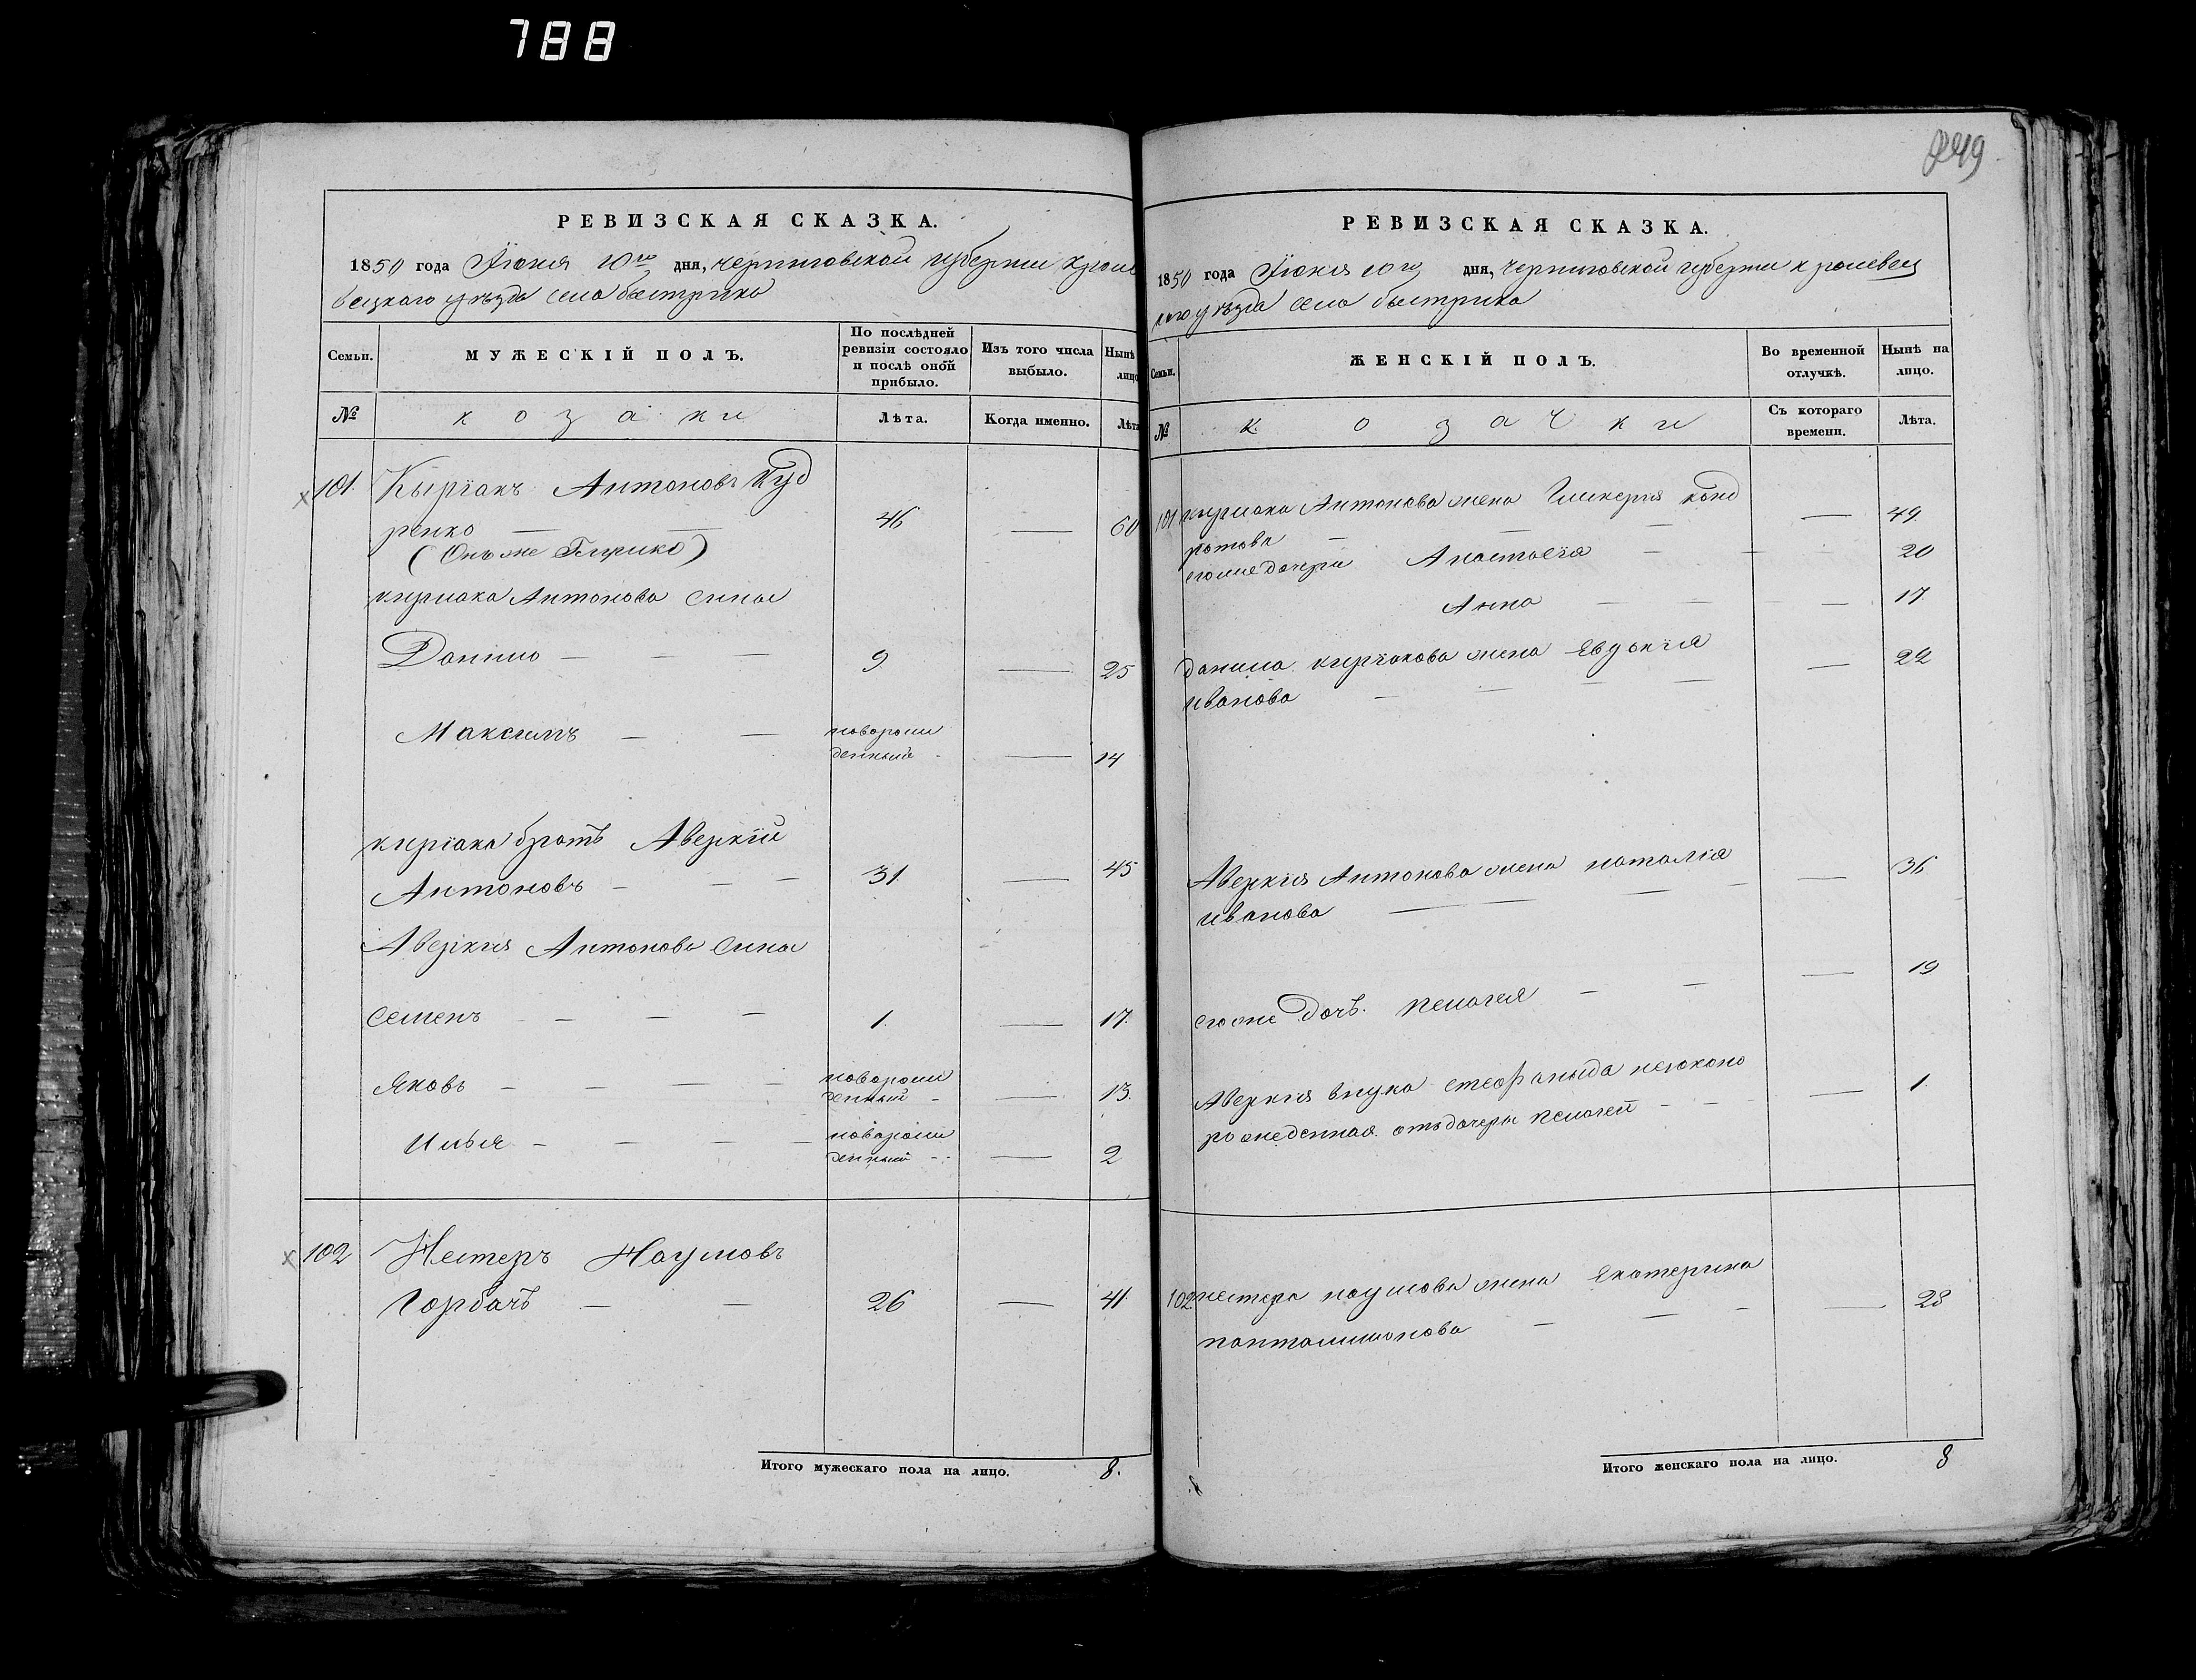 788
РЕВИЗСКАЯ СКАЗКА.
1850 года Іюня 10го дня, Черниговской губернии Кроле
вецкаго уѣзда села быстрика
Семьи.
МУЖЕСКІЙ ПОЛЪ.
По послѣдней ревизіи состояло и послѣ оной прибыло.
Изъ того числа выбыло.
Нынѣ лицо
№
козаки
Лѣта.
Когда именно.
Лѣта
101. Кыріакъ Антоновъ Куд
ренко — — 46 — 60
(Онъ же Гирико)
кириака Антонова сины
Данило — — — 9 — 25
Максимъ — — новорож
денный - — 14
киріака братъ Аверкій
Антоновъ — — — 31. — 45
Аверкия Антонова сины
Семенъ — — — 1. — 17.
Яковъ — — — — новорож
денный - — 13.
Илья — — — — новорож
денный -- — 2
102 Нестеръ Наумовъ
Горбачъ — — 26 — 41.
Итого мужескаго пола на лицо. 8.
249
РЕВИЗСКАЯ СКАЗКА.
1850 года Іюня 10го дня, Черниговской губернии кролевец
каго уѣзда села быстрика
Семьи.
ЖЕНСКІЙ ПОЛЪ.
Во временной отлучкѣ.
Нынѣ на лицо.
№
козачки
Съ котораго времени.
Лѣта.
101 кириака Антонова жена Гликерия конд
ратова — — — — 49.
егоже дочери Анастасія — — — 20
Анна — — — — 17.
Данила киріакова жена Евдокія
иванова — — — — — 22
Аверкія Антонова жена наталія
иванова — — — — — 36
егоже дочь. Пелагея — — — 19
Аверкія внука стефаныда незаконо
рожденная отъ дочери пелагеи — — — 1.
102 нестера наумова жена Екатерина
панталимонова — — — — 28
Итого женскаго пола на лицо. 8